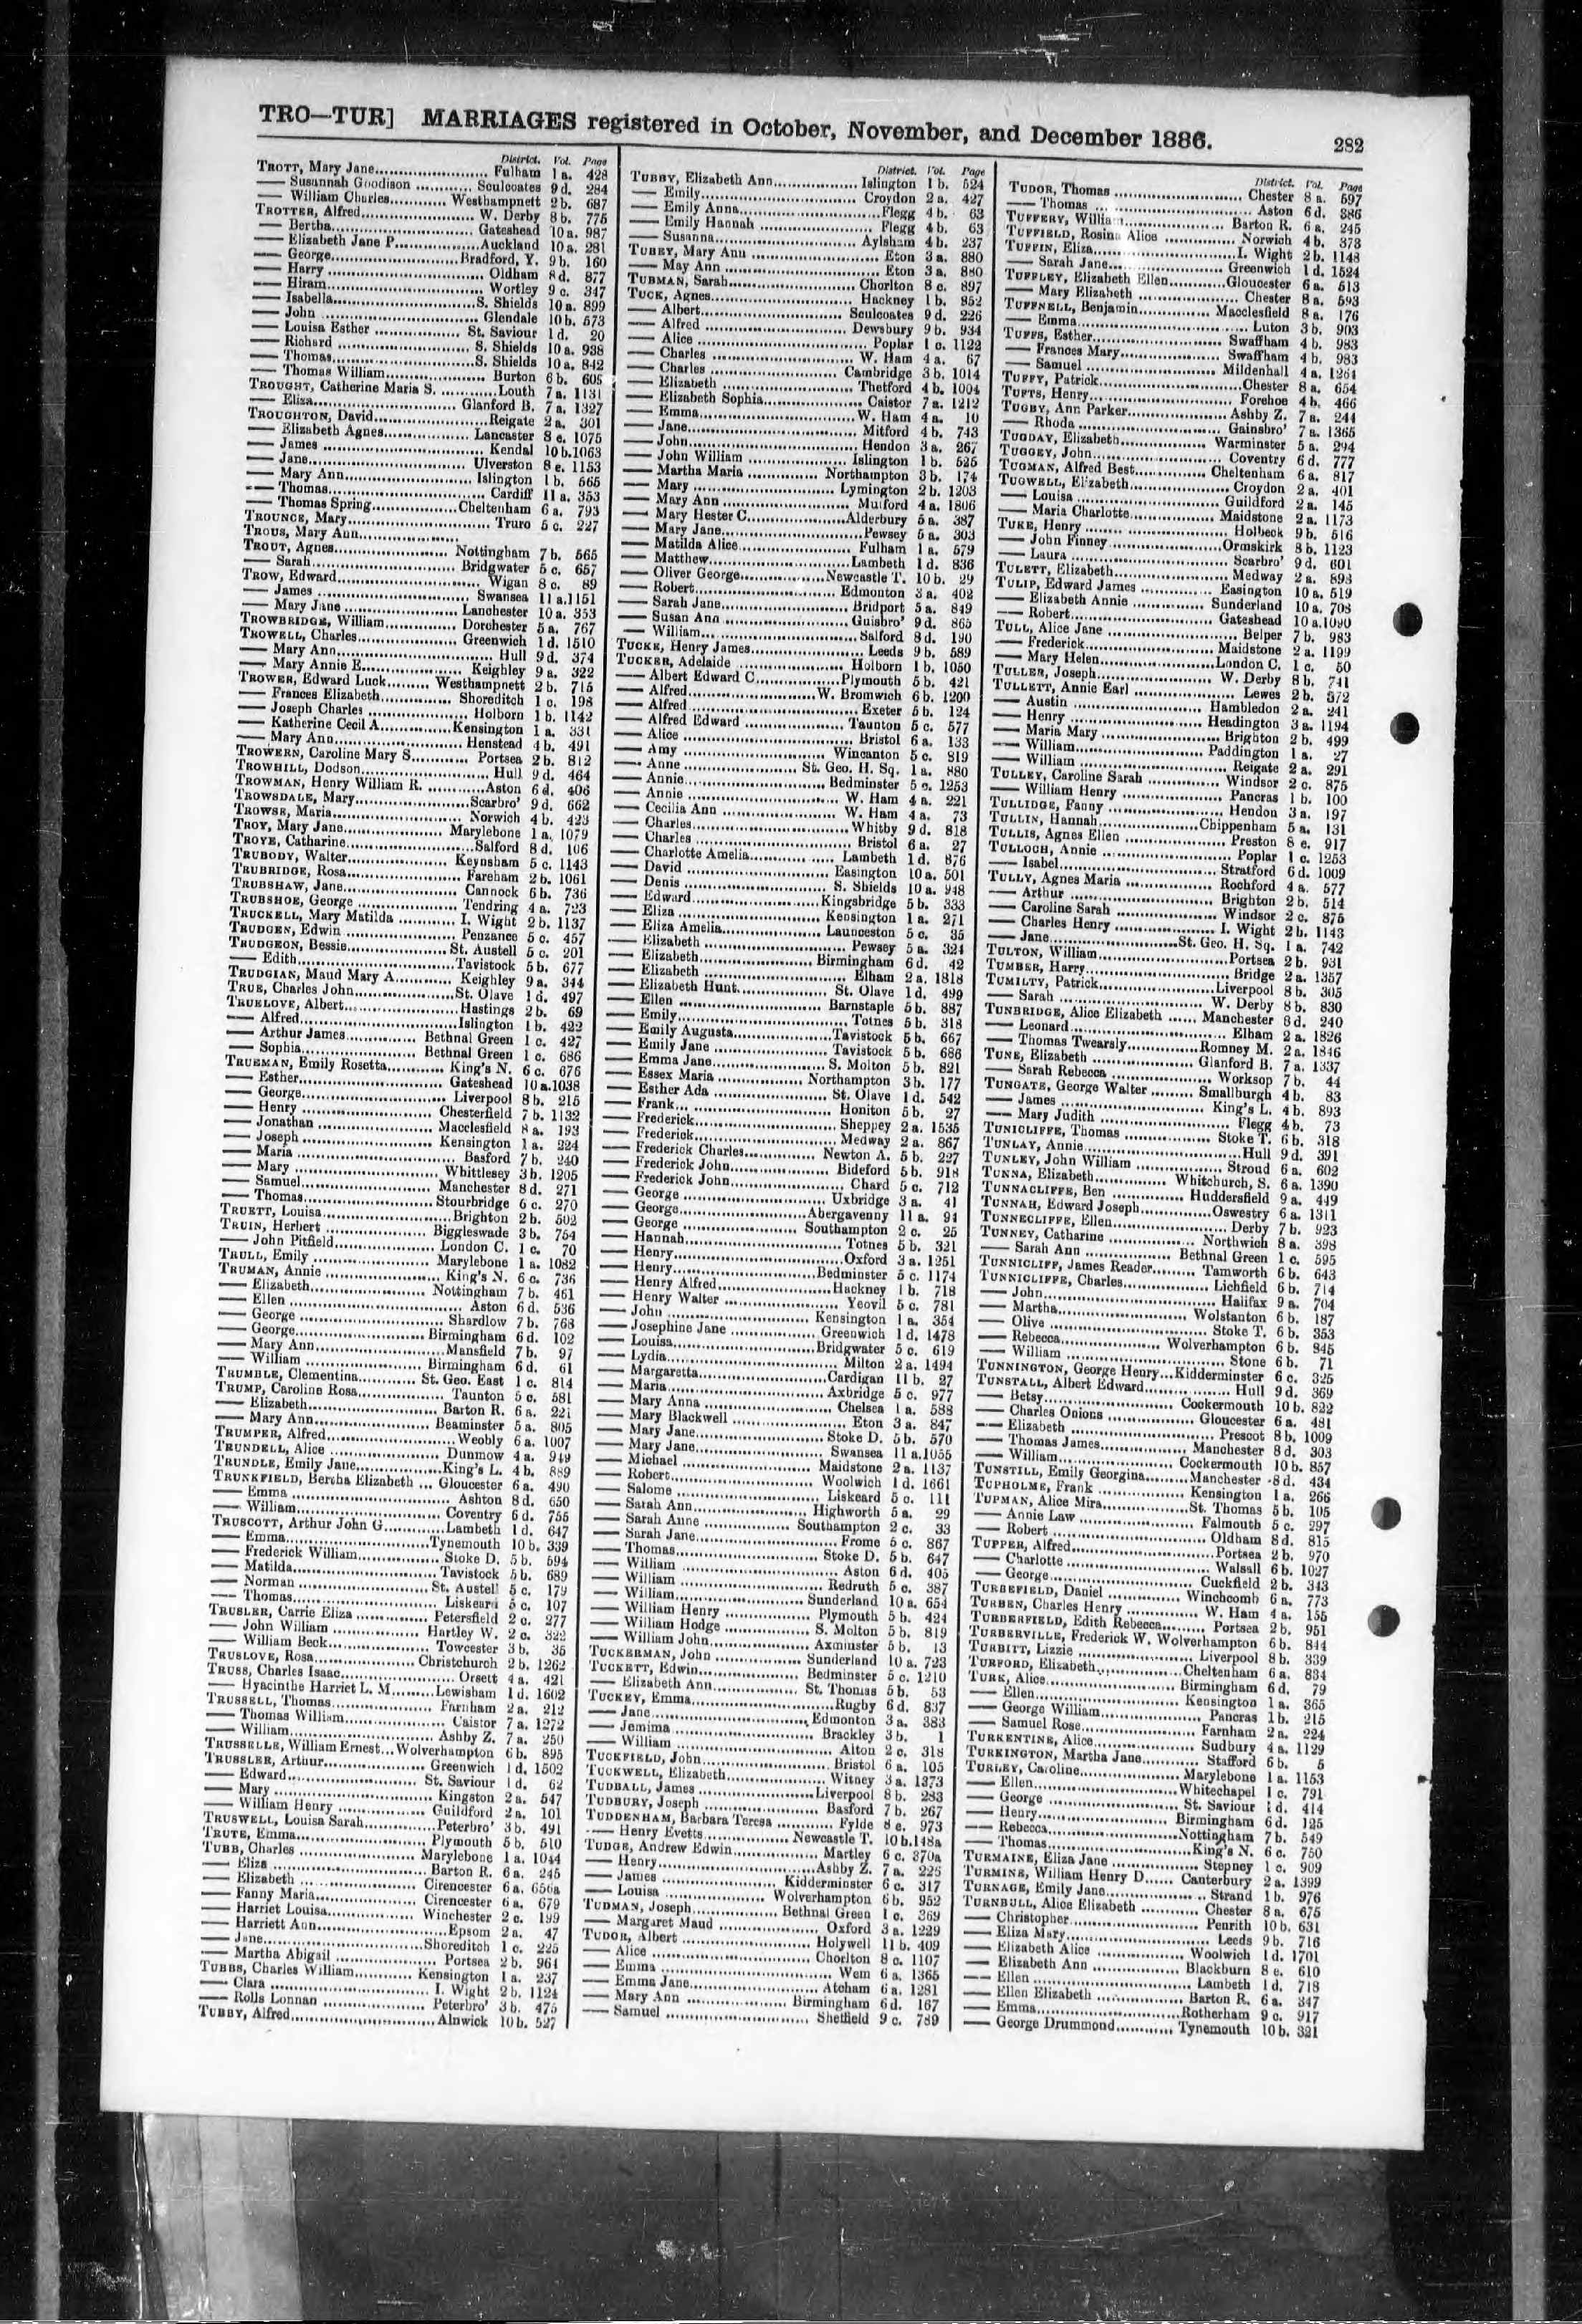 TRO—TUR] MARRIAGES registered in October, November, and December 1886. 282
District. Vol. Page
TROTT, Mary Jane Fulham 1 a. 428
— Susannah Goodison Sculcoates 9 d. 284
— William Charles Westhampnett 2 b. 687
TROTTER, Alfred W. Derby 8 b. 775
— Bertha Gateshead 10 a. 987
— Elizabeth Jane P. Auckland 10 a. 281
— George Bradford, Y. 9 b. 160
— Harry Oldham 8 d. 877
— Hiram Wortley 9 c. 347
— Isabella S. Shields 10 a. 899
— John Glendale 10 b. 573
— Louisa Esther St. Saviour 1 d. 20
— Richard S. Shields 10 a. 938
— Thomas S. Shields 10 a. 842
— Thomas William Burton 6 b. 605
TROUGHT, Catherine Maria S. Louth 7 a. 1131
— Eliza Glanford B. 7 a. 1327
TROUGHTON, David Reigate 2 a. 301
— Elizabeth Agnes Lancaster 8 e. 1075
— James Kendal 10 b. 1063
— Jane Ulverston 8 e. 1153
— Mary Ann Islington 1 b. 565
— Thomas Cardiff 11 a. 353
— Thomas Spring Cheltenham 6 a. 793
TROUNCE, Mary Truro 5 c. 227
TROUS, Mary Ann
TROUT, Agnes Nottingham 7 b. 565
— Sarah Bridgwater 5 c. 657
TROW, Edward Wigan 8 c. 89
— James Swansea 11 a. 1151
— Mary Jane Lanchester 10 a. 353
TROWBRIDGE, William Dorchester 5 a. 767
TROWELL, Charles Greenwich 1 d. 1510
— Mary Ann Hull 9 d. 374
— Mary Annie E. Keighley 9 a. 322
TROWER, Edward Luck Westhampnett 2 b. 715
— Frances Elizabeth Shoreditch 1 c. 198
— Joseph Charles Holborn 1 b. 1142
— Katherine Cecil A. Kensington 1 a. 331
— Mary Ann Henstead 4 b. 491
TROWERN, Caroline Mary S. Portsea 2 b. 812
TROWHILL, Dodson Hull 9 d. 464
TROWMAN, Henry William R. Aston 6 d. 406
TROWSDALE, Mary Scarbro' 9 d. 662
TROWSE, Maria Norwich 4 b. 423
TROY, Mary Jane Marylebone 1 a. 1079
TROYE, Catharine Salford 8 d. 106
TRUBODY, Walter Keynsham 5 c. 1143
TRUBRIDGE, Rosa Fareham 2 b. 1061
TRUBSHAW, Jane Cannock 6 b. 736
TRUBSHOE, George Tendring 4 a. 723
TRUCKELL, Mary Matilda I. Wight 2 b. 1137
TRUDGEN, Edwin Penzance 5 c. 457
TRUDGEON, Bessie St. Austell 5 c. 201
— Edith Tavistock 5 b. 677
TRUDGIAN, Maud Mary A. Keighley 9 a. 344
TRUE, Charles John St. Olave 1 d. 497
TRUELOVE, Albert Hastings 2 b. 69
— Alfred Islington 1 b. 422
— Arthur James Bethnal Green 1 c. 427
— Sophia Bethnal Green 1 c. 686
TRUEMAN, Emily Rosetta King's N. 6 c. 676
— Esther Gateshead 10 a. 1038
— George Liverpool 8 b. 215
— Henry Chesterfield 7 b. 1132
— Jonathan Macclesfield 8 a. 193
— Joseph Kensington 1 a. 224
— Maria Basford 7 b. 240
— Mary Whittlesey 3 b. 1205
— Samuel Manchester 8 d. 271
— Thomas Stourbridge 6 c. 270
TRUETT, Louisa Brighton 2 b. 502
TRUIN, Herbert Biggleswade 3 b. 754
— John Pitfield London C. 1 c. 70
TRULL, Emily Marylebone 1 a. 1082
TRUMAN, Annie King's N. 6 c. 736
— Elizabeth Nottingham 7 b. 461
— Ellen Aston 6 d. 536
— George Shardlow 7 b. 768
— George Birmingham 6 d. 102
— Mary Ann Mansfield 7 b. 97
— William Birmingham 6 d. 61
TRUMBLE, Clementina St. Geo. East 1 c. 814
TRUMP, Caroline Rosa Taunton 5 c. 581
— Elizabeth Barton R. 6 a. 221
— Mary Ann Beaminster 5 a. 805
TRUMPER, Alfred Weobly 6 a. 1007
TRUNDELL, Alice Dunmow 4 a. 949
TRUNDLE, Emily Jane King's L. 4 b. 889
TRUNKFIELD, Bertha Elizabeth Gloucester 6 a. 490
— Emma Ashton 8 d. 650
— William Coventry 6 d. 755
TRUSCOTT, Arthur John G. Lambeth 1 d. 647
— Emma Tynemouth 10 b. 339
— Frederick William Stoke D. 5 b. 594
— Matilda Tavistock 5 b. 689
— Norman St. Austell 5 c. 179
— Thomas Liskeard 5 c. 107
TRUSLER, Carrie Eliza Petersfield 2 c. 277
— John William Hartley W. 2 c. 322
— William Beck Towcester 3 b. 35
TRUSLOVE, Rosa Christchurch 2 b. 1262
TRUSS, Charles Isaac Orsett 4 a. 421
— Hyacinthe Harriet L. M. Lewisham 1 d. 1602
TRUSSELL, Thomas Farnham 2 a. 212
— Thomas William Caistor 7 a. 1272
— William Ashby Z. 7 a. 250
TRUSSELLE, William Ernest Wolverhampton 6 b. 895
TRUSSLER, Arthur Greenwich 1 d. 1502
— Edward St. Saviour 1 d. 62
— Mary Kingston 2 a. 547
— William Henry Guildford 2 a. 101
TRUSWELL, Louisa Sarah Peterbro' 3 b. 491
TRUTE, Emma Plymouth 5 b. 510
TUBB, Charles Marylebone 1 a. 1044
— Eliza Barton R. 6 a. 245
— Elizabeth Cirencester 6 a. 656a
— Fanny Maria Cirencester 6 a. 679
— Harriet Louisa Winchester 2 c. 199
— Harriett Ann Epsom 2 a. 47
— Jane Shoreditch 1 c. 225
— Martha Abigail Portsea 2 b. 961
TUBBS, Charles William Kensington 1 a. 237
— Clara I. Wight 2 b. 1124
— Rolls Lonnan Peterbro' 3 b. 475
TUBBY, Alfred Alnwick 10 b. 527
District. Vol. Page
TUBBY, Elizabeth Ann Islington 1 b. 524
— Emily Croydon 2 a. 427
— Emily Anna Flegg 4 b. 63
— Emily Hannah Flegg 4 b. 63
— Susanna Aylsham 4 b. 237
TUBEY, Mary Ann Eton 3 a. 880
— May Ann Eton 3 a. 880
TUBMAN, Sarah Chorlton 8 c. 897
TUCK, Agnes Hackney 1 b. 852
— Albert Sculcoates 9 d. 226
— Alfred Dewsbury 9 b. 934
— Alice Poplar 1 c. 1122
— Charles W. Ham 4 a. 67
— Charles Cambridge 3 b. 1014
— Elizabeth Thetford 4 b. 1004
— Elizabeth Sophia Caistor 7 a. 1212
— Emma W. Ham 4 a. 10
— Jane Mitford 4 b. 743
— John Hendon 3 a. 267
— John William Islington 1 b. 525
— Martha Maria Northampton 3 b. 174
— Mary Lymington 2 b. 1203
— Mary Ann Mutford 4 a. 1806
— Mary Hester C. Alderbury 5 a. 387
— Mary Jane Pewsey 5 a. 303
— Matilda Alice Fulham 1 a. 579
— Matthew Lambeth 1 d. 836
— Oliver George Newcastle T. 10 b. 29
— Robert Edmonton 3 a. 402
— Sarah Jane Bridport 5 a. 849
— Susan Ann Guisbro' 9 d. 865
— William Salford 8 d. 190
TUCKE, Henry James Leeds 9 b. 589
TUCKER, Adelaide Holborn 1 b. 1050
— Albert Edward C. Plymouth 5 b. 421
— Alfred W. Bromwich 6 b. 1200
— Alfred Exeter 5 b. 124
— Alfred Edward Taunton 5 c. 577
— Alice Bristol 6 a. 133
— Amy Wincanton 5 c. 819
— Anne St. Geo. H. Sq. 1 a. 880
— Annie Bedminster 5 c. 1253
— Annie W. Ham 4 a. 221
— Cecilia Ann W. Ham 4 a. 73
— Charles Whitby 9 d. 818
— Charles Bristol 6 a. 27
— Charlotte Amelia Lambeth 1 d. 876
— David Easington 10 a. 501
— Denis S. Shields 10 a. 948
— Edward Kingsbridge 5 b. 333
— Eliza Kensington 1 a. 271
— Eliza Amelia Launceston 5 c. 35
— Elizabeth Pewsey 5 a. 324
— Elizabeth Birmingham 6 d. 42
— Elizabeth Elham 2 a. 1818
— Elizabeth Hunt St. Olave 1 d. 499
— Ellen Barnstaple 5 b. 887
— Emily Totnes 5 b. 318
— Emily Augusta Tavistock 5 b. 667
— Emily Jane Tavistock 5 b. 686
— Emma Jane S. Molton 5 b. 821
— Essex Maria Northampton 3 b. 177
— Esther Ada St. Olave 1 d. 542
— Frank Honiton 5 b. 27
— Frederick Sheppey 2 a. 1535
— Frederick Medway 2 a. 867
— Frederick Charles Newton A. 5 b. 227
— Frederick John Bideford 5 b. 918
— Frederick John Chard 5 c. 712
— George Uxbridge 3 a. 41
— George Abergavenny 11 a. 91
— George Southampton 2 c. 25
— Hannah Totnes 5 b. 321
— Henry Oxford 3 a. 1251
— Henry Bedminster 5 c. 1174
— Henry Alfred Hackney 1 b. 718
— Henry Walter Yeovil 5 c. 781
— John Kensington 1 a. 354
— Josephine Jane Greenwich 1 d. 1478
— Louisa Bridgwater 5 c. 619
— Lydia Milton 2 a. 1494
— Margaretta Cardigan 11 b. 27
— Maria Axbridge 5 c. 977
— Mary Anna Chelsea 1 a. 588
— Mary Blackwell Eton 3 a. 847
— Mary Jane Stoke D. 5 b. 570
— Mary Jane Swansea 11 a. 1055
— Michael Maidstone 2 a. 1137
— Robert Woolwich 1 d. 1661
— Salome Liskeard 5 c. 111
— Sarah Ann Highworth 5 a. 29
— Sarah Anne Southampton 2 c. 33
— Sarah Jane Frome 5 c. 867
— Thomas Stoke D. 5 b. 647
— William Aston 6 d. 405
— William Redruth 5 c. 387
— William Sunderland 10 a. 654
— William Henry Plymouth 5 b. 424
— William Hodge S. Molton 5 b. 819
— William John Axminster 5 b. 13
TUCKERMAN, John Sunderland 10 a. 723
TUCKETT, Edwin Bedminster 5 c. 1210
— Elizabeth Ann St. Thomas 5 b. 53
TUCKEY, Emma Rugby 6 d. 837
— Jane Edmonton 3 a. 383
— Jemima Brackley 3 b. 1
— William Alton 2 c. 318
TUCKFIELD, John Bristol 6 a. 105
TUCKWELL, Elizabeth Witney 3 a. 1373
TUDBALL, James Liverpool 8 b. 283
TUDBURY, Joseph Basford 7 b. 267
TUDDENHAM, Barbara Teresa Fylde 8 e. 973
— Henry Evetts Newcastle T. 10 b. 148a
TUDGE, Andrew Edwin Martley 6 c. 370a
— Henry Ashby Z. 7 a. 225
— James Kidderminster 6 c. 317
— Louisa Wolverhampton 6 b. 952
TUDMAN, Joseph Bethnal Green 1 c. 369
— Margaret Maud Oxford 3 a. 1229
TUDOR, Albert Holywell 11 b. 409
— Alice Chorlton 8 c. 1107
— Emma Wem 6 a. 1365
— Emma Jane Atcham 6 a. 1281
— Mary Ann Birmingham 6 d. 167
— Samuel Sheffield 9 c. 789
District. Vol. Page
TUDOR, Thomas Chester 8 a. 597
— Thomas Aston 6 d. 386
TUFFERY, William Barton R. 6 a. 245
TUFFIELD, Rosina Alice Norwich 4 b. 373
TUFFIN, Eliza I. Wight 2 b. 1148
— Sarah Jane Greenwich 1 d. 1524
TUFFLEY, Elizabeth Ellen Gloucester 6 a. 513
— Mary Elizabeth Chester 8 a. 593
TUFFNELL, Benjamin Macclesfield 8 a. 176
— Emma Luton 3 b. 903
TUFFS, Esther Swaffham 4 b. 983
— Frances Mary Swaffham 4 b. 983
— Samuel Mildenhall 4 a. 1261
TUFFY, Patrick Chester 8 a. 654
TUFTS, Henry Forehoe 4 b. 466
TUGBY, Ann Parker Ashby Z. 7 a. 244
— Rhoda Gainsbro' 7 a. 1365
TUGDAY, Elizabeth Warminster 5 a. 294
TUGGEY, John Coventry 6 d. 777
TUGMAN, Alfred Best Cheltenham 6 a. 817
TUGWELL, Elizabeth Croydon 2 a. 401
— Louisa Guildford 2 a. 145
— Maria Charlotte Maidstone 2 a. 1173
TUKE, Henry Holbeck 9 b. 516
— John Finney Ormskirk 8 b. 1123
— Laura Scarbro' 9 d. 601
TULETT, Elizabeth Medway 2 a. 893
TULIP, Edward James Easington 10 a. 519
— Elizabeth Annie Sunderland 10 a. 708
— Robert Gateshead 10 a. 1090
TULL, Alice Jane Belper 7 b. 983
— Frederick Maidstone 2 a. 1199
— Mary Helen London C. 1 c. 50
TULLER, Joseph W. Derby 8 b. 741
TULLETT, Annie Earl Lewes 2 b. 372
— Austin Hambledon 2 a. 241
— Henry Headington 3 a. 1194
— Maria Mary Brighton 2 b. 499
— William Paddington 1 a. 27
— William Reigate 2 a. 291
TULLEY, Caroline Sarah Windsor 2 c. 875
— William Henry Pancras 1 b. 100
TULLIDGE, Fanny Hendon 3 a. 197
TULLIN, Hannah Chippenham 5 a. 131
TULLIS, Agnes Ellen Preston 8 e. 917
TULLOCH, Annie Poplar 1 c. 1253
— Isabel Stratford 6 d. 1009
TULLY, Agnes Maria Rochford 4 a. 577
— Arthur Brighton 2 b. 514
— Caroline Sarah Windsor 2 c. 875
— Charles Henry I. Wight 2 b. 1143
— Jane St. Geo. H. Sq. 1 a. 742
TULTON, William Portsea 2 b. 931
TUMBER, Harry Bridge 2 a. 1357
TUMILTY, Patrick Liverpool 8 b. 305
— Sarah W. Derby 8 b. 830
TUNBRIDGE, Alice Elizabeth Manchester 8 d. 240
— Leonard Elham 2 a. 1826
— Thomas Twearsly Romney M. 2 a. 1846
TUNE, Elizabeth Glanford B. 7 a. 1337
— Sarah Rebecca Worksop 7 b. 44
TUNGATE, George Walter Smallburgh 4 b. 83
— James King's L. 4 b. 893
— Mary Judith Flegg 4 b. 73
TUNICLIFFE, Thomas Stoke T. 6 b. 318
TUNLAY, Annie Hull 9 d. 391
TUNLEY, John William Stroud 6 a. 602
TUNNA, Elizabeth Whitchurch, S. 6 a. 1390
TUNNACLIFFE, Ben Huddersfield 9 a. 449
TUNNAH, Edward Joseph Oswestry 6 a. 1311
TUNNECLIFFE, Ellen Derby 7 b. 923
TUNNEY, Catharine Northwich 8 a. 398
— Sarah Ann Bethnal Green 1 c. 595
TUNNICLIFF, James Reader Tamworth 6 b. 643
TUNNICLIFFE, Charles Lichfield 6 b. 714
— John Halifax 9 a. 704
— Martha Wolstanton 6 b. 187
— Olive Stoke T. 6 b. 353
— Rebecca Wolverhampton 6 b. 845
— William Stone 6 b. 71
TUNNINGTON, George Henry Kidderminster 6 c. 325
TUNSTALL, Albert Edward Hull 9 d. 369
— Betsy Cockermouth 10 b. 822
— Charles Onions Gloucester 6 a. 481
— Elizabeth Prescot 8 b. 1009
— Thomas James Manchester 8 d. 303
— William Cockermouth 10 b. 857
TUNSTILL, Emily Georgina Manchester 8 d. 434
TUPHOLME, Frank Kensington 1 a. 266
TUPMAN, Alice Mira St. Thomas 5 b. 105
— Annie Law Falmouth 5 c. 297
— Robert Oldham 8 d. 815
TUPPER, Alfred Portsea 2 b. 970
— Charlotte Walsall 6 b. 1027
— George Cuckfield 2 b. 343
TURBEFIELD, Daniel Winchcomb 6 a. 773
TURBEN, Charles Henry W. Ham 4 a. 155
TURBERFIELD, Edith Rebecca Portsea 2 b. 951
TURBERVILLE, Frederick W. Wolverhampton 6 b. 844
TURBITT, Lizzie Liverpool 8 b. 339
TURFORD, Elizabeth Cheltenham 6 a. 834
TURK, Alice Birmingham 6 d. 79
— Ellen Kensington 1 a. 365
— George William Pancras 1 b. 215
— Samuel Rose Farnham 2 a. 224
TURKENTINE, Alice Sudbury 4 a. 1129
TURKINGTON, Martha Jane Stafford 6 b. 5
TURLEY, Caroline Marylebone 1 a. 1153
— Ellen Whitechapel 1 c. 791
— George St. Saviour 1 d. 414
— Henry Birmingham 6 d. 125
— Rebecca Nottingham 7 b. 549
— Thomas King's N. 6 c. 750
TURMAINE, Eliza Jane Stepney 1 c. 909
TURMINE, William Henry D. Canterbury 2 a. 1399
TURNAGE, Emily Jane Strand 1 b. 976
TURNBULL, Alice Elizabeth Chester 8 a. 675
— Christopher Penrith 10 b. 631
— Eliza Mary Leeds 9 b. 716
— Elizabeth Alice Woolwich 1 d. 1701
— Elizabeth Ann Blackburn 8 e. 610
— Ellen Lambeth 1 d. 718
— Ellen Elizabeth Barton R. 6 a. 347
— Emma Rotherham 9 c. 917
— George Drummond Tynemouth 10 b. 321